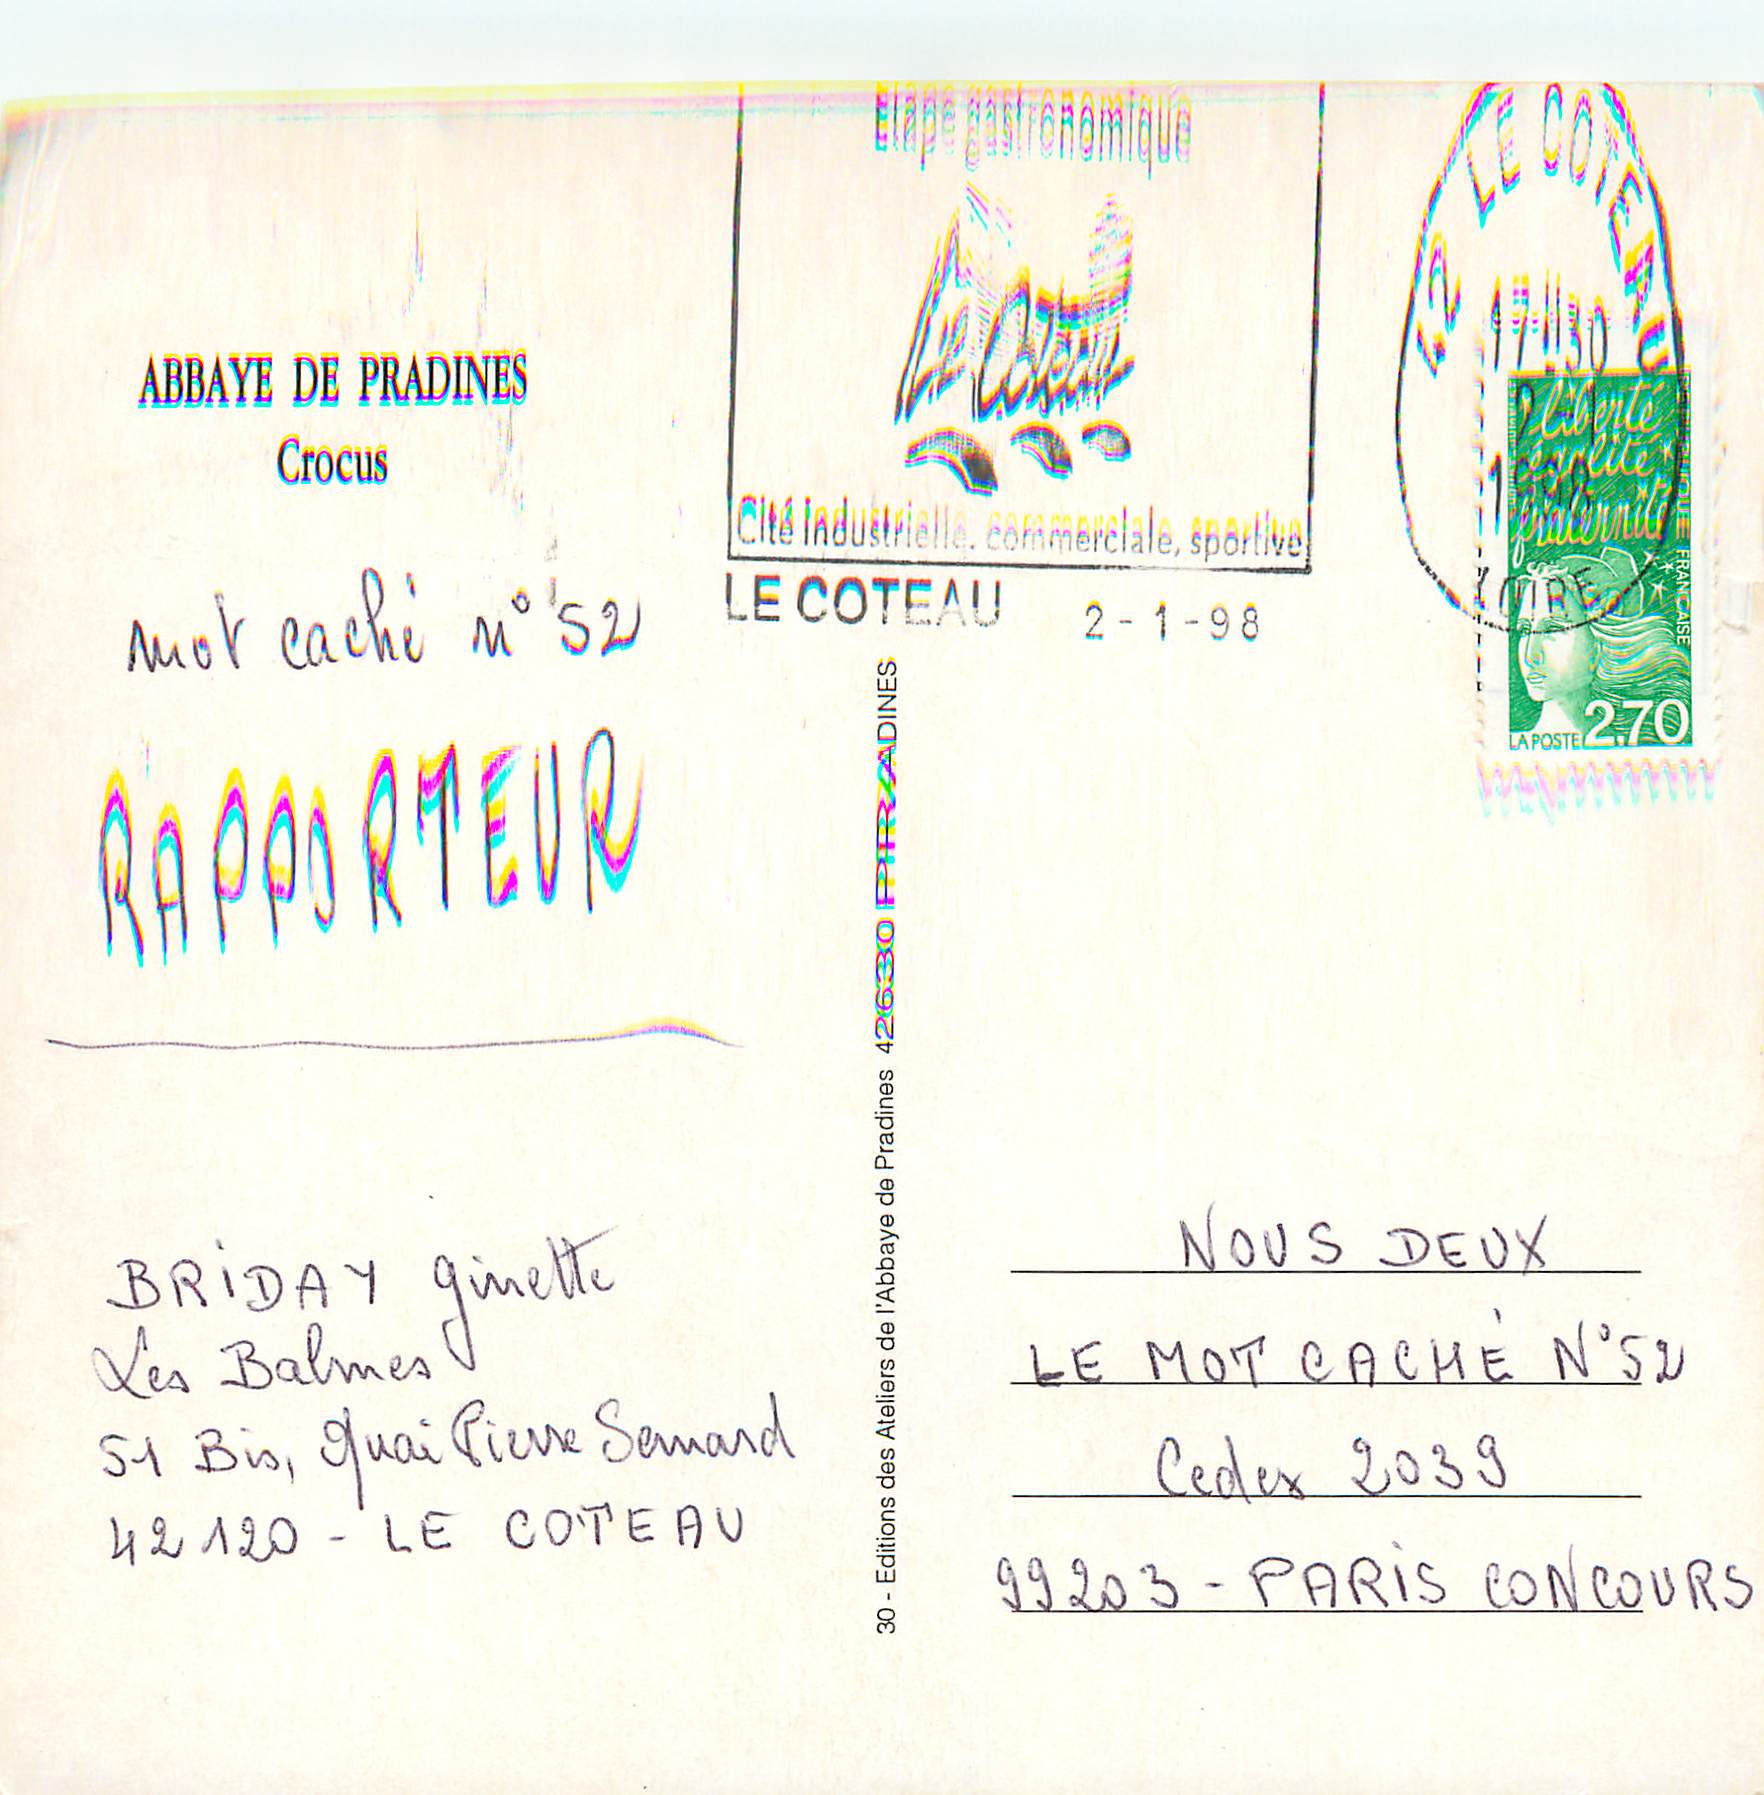 ABBAYE DE PRADINES
Crocus
mot caché n° 52
RAPPORTEUR
BRIDAY Ginette
Les Balmes
51 Bis, Quai Pierre Semard
42120 - LE COTEAU
30 - Editions des Ateliers de l'Abbaye de Pradines 42630 PRADINES
Etape gastronomique
Le Coteau
Cité industrielle, commerciale, sportive
LE COTEAU 2-1-98
42 LE COTEAU
17H30
LOIRE
liberté
égalité
fraternité
FRANCAISE
LA POSTE 2,70
NOUS DEUX
LE MOT CACHÉ N°52
Cedex 2039
99203 - PARIS CONCOURS